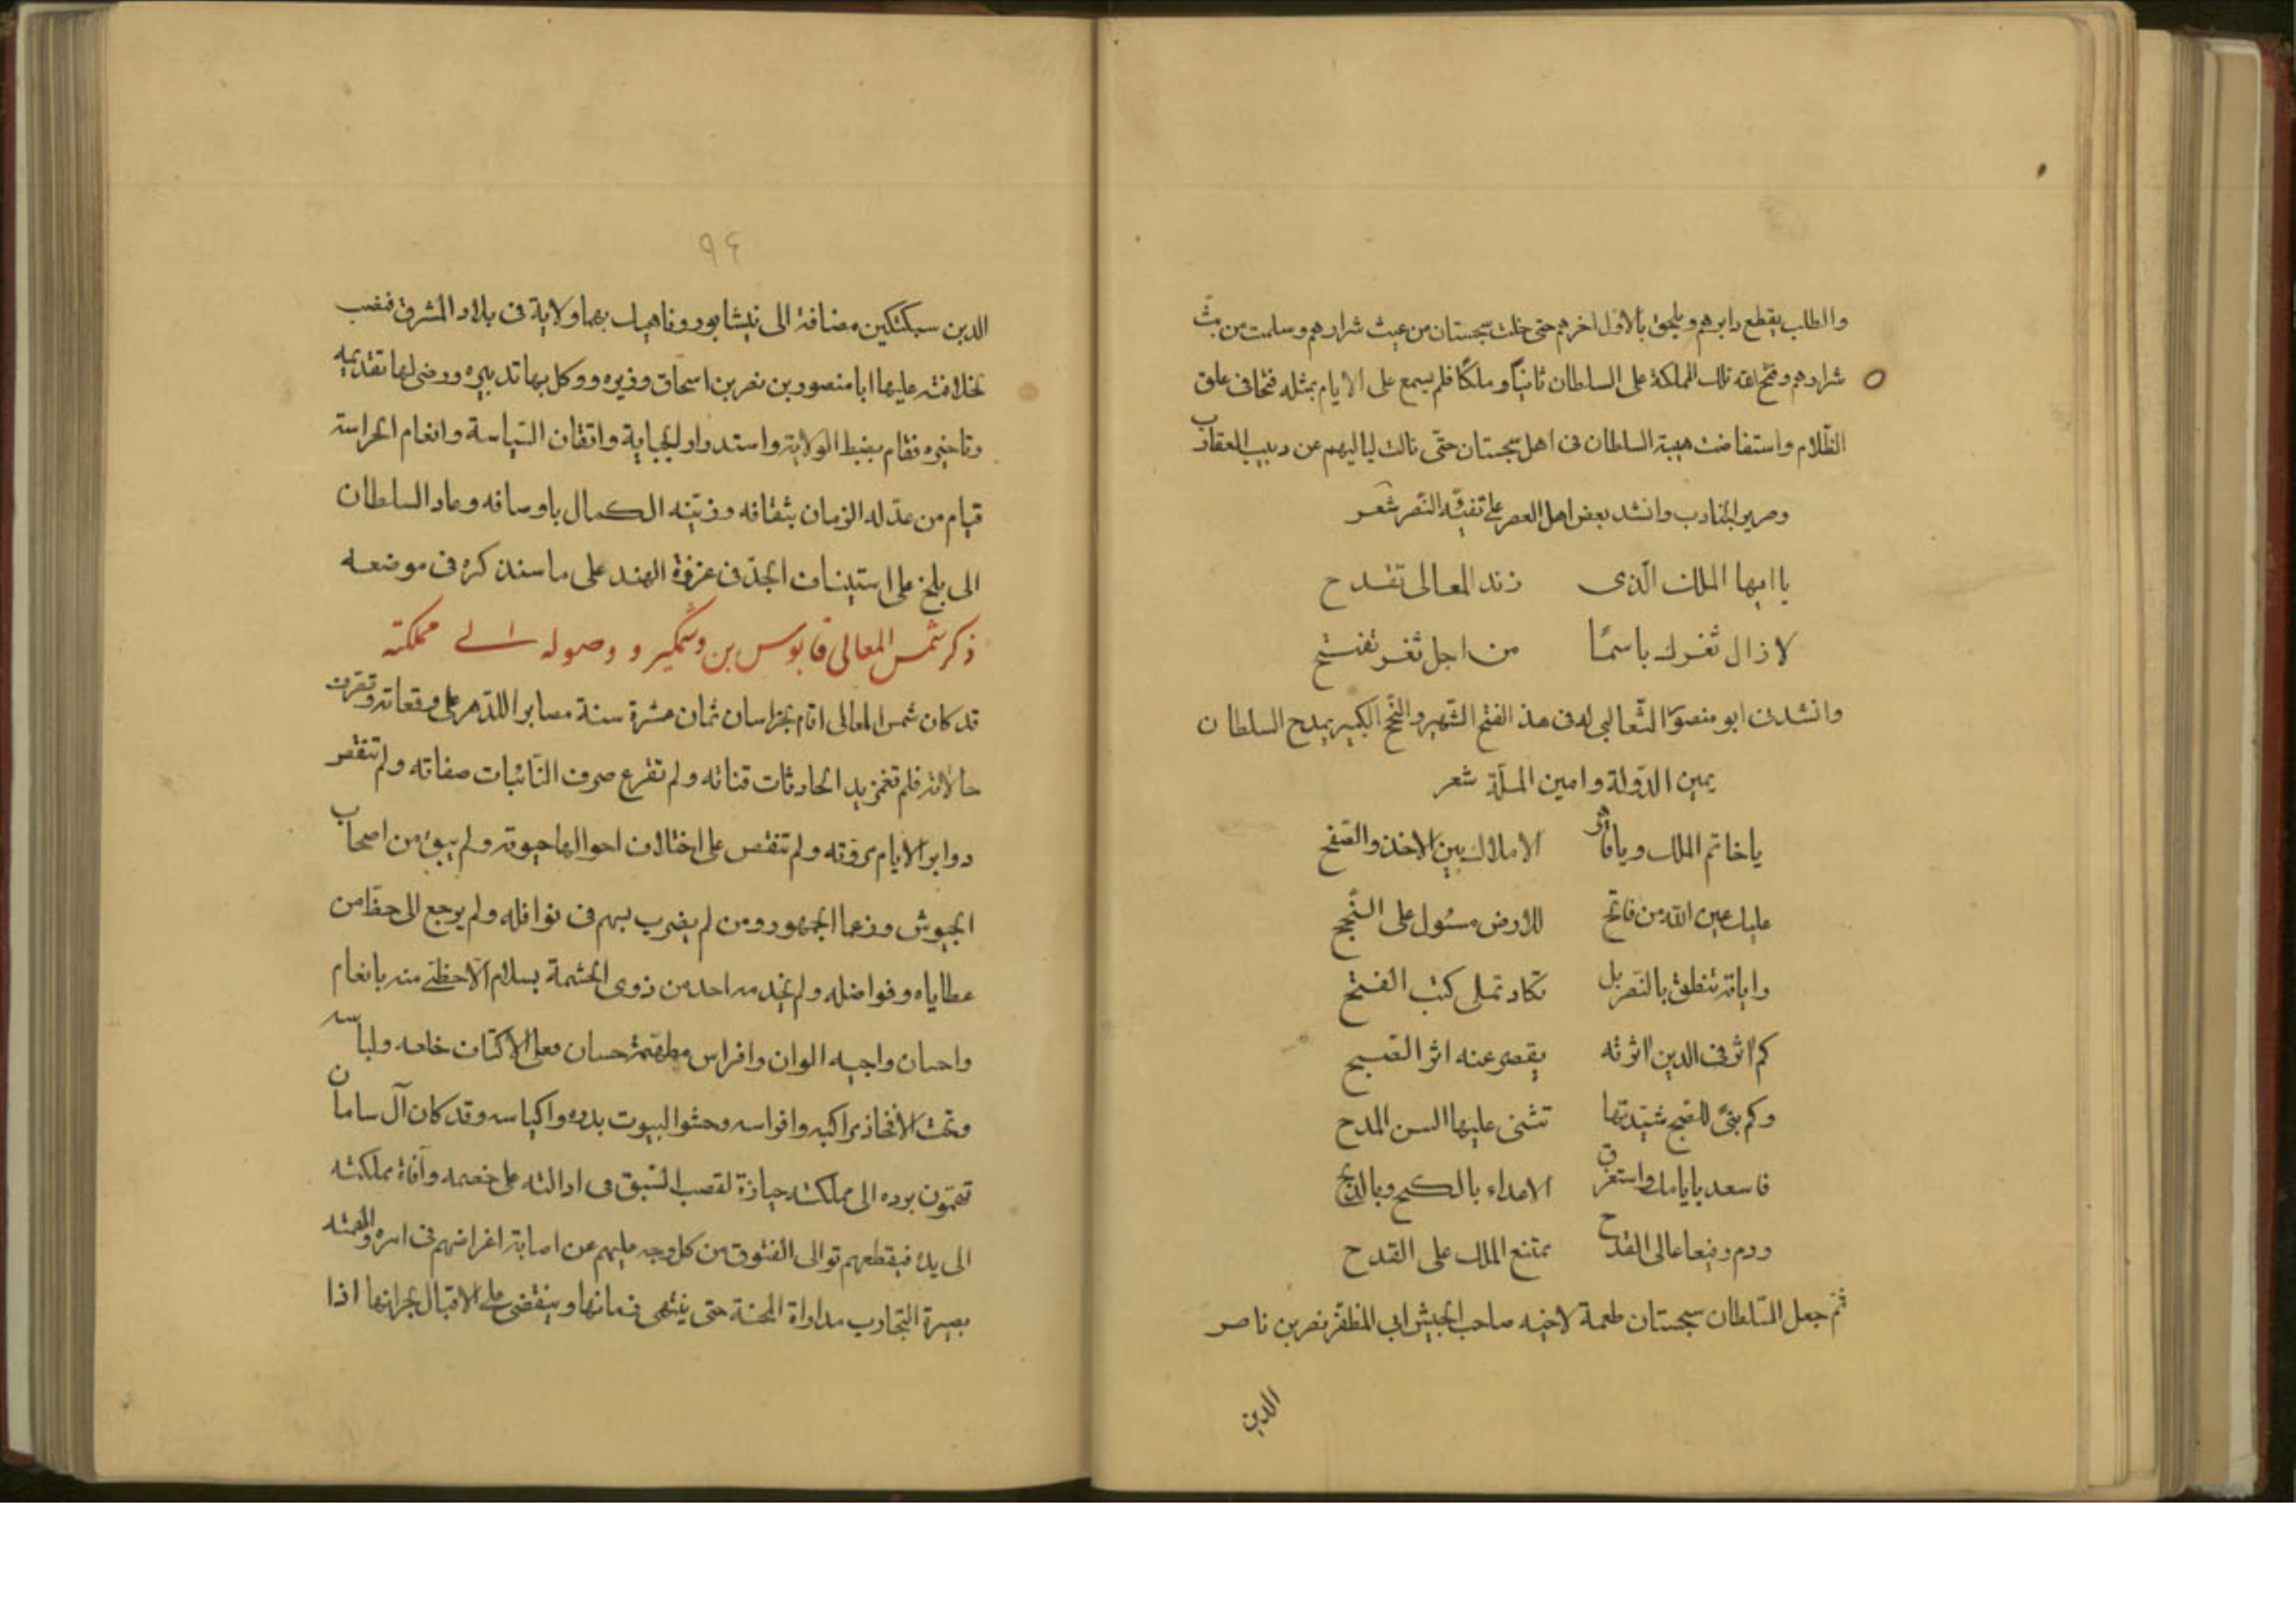 والطلب يقطع دابرهم ويلحق بالاول اخرهم حتى خلت سجستان من عيث شرارهم وسلمت من بثّ
شرارهم وفتح الله تلك المملكة على السلطان ثانيًا وملكًا فلم يسمع على الايام بمثله فتحا فى علق
الظّلام واستفاضت هيبة السلطان فى اهل سجستان حتّى نالت لياليهم عن دبيب العقارب
وصرير الجنادب وانشد بعض اهل العصر على تفيّه النّصر شعر
يا ايها الملك الّذى زند المعالى تقدح
لا زال ثغرك باسمًا من اجل ثغر تفتتح
وانشدنى ابو منصور الثّعالبى له فى هذ الفتح الشّهير والنّجح الكبير يمدح السلطان
يمين الدّولة وامين الملّة شعر
يا خاتم الملك ويا قاهر الاملاك بين الاخذ والصّفح
عليك عين اللّه من فاتح للارض مسئول على النّجح
راياته تنطق بالنّصر بل تكاد تملى كتب الفتح
كم اثر فى الدين اثرته يقصر عنه اثر الصّبح
وكم بنًى للفتح شيّدتها تثنى عليها السن المدح
فاسعد بايامك واستغرق الاعداء بالكبح وبالذبح
ودم رفيعا عالى القدح ممتنع الملك على القدح
ثم جعل السّلطان سجستان طعمة لاخيه صاحب الجيش ابى المظفّر نصر بن ناصر
الدين
٩٤
الدين سبكتكين مضافة الى نيشابور وناهيك بهما ولاية فى بلاد المشرق فنصب
لخلافته عليها ابا منصور بن نصر بن اسحاق وزيره ووكل بها تدبيره ورضى لها تقديمه
وتاخيره فقام بضبط الولاية واستدرار الجباية واتقان السّياسة وانعام الحراسة
قيام من عدّله الزمان بثقافه وزيّنه الكمال باوصافه وعاد السلطان
الى بلخ على استيناف الجدّ فى غزوة الهند على ما سنذكره فى موضعه
ذكر شمس المعالى قابوس بن وشمكير و وصوله الى مملكته
قد كان شمس المعالى اقام بخراسان ثمان عشرة سنة مصابرا للدّهر على وقعاته وتصرف
حالاته فلم تغمز يد الحادثات قناته ولم تقرع صروف النّائبات صفاته ولم تنقص
دواير الايام مروّته ولم تنتقص على اختلاف احوالها حيوته ولم يبق من اصحاب
الجيوش وزعما الجمهور ومن لم يضرب بسهم فى نوافله ولم يرجع الى حظ من
عطاياه وفواضله ولم يخدمه احد من ذوى الحشمة بسلام الّا حظى منه بانعام
واحسان واجبه الوان وافراس مطهّمة حسان فعلى الاكتاف خلعه ولباسه
وتحت الافخاذ مراكبه وافراسه وحشو البيوت بدره واكياسه وقد كان آل سامان
تهمّون برده الى مملكته حيازة لقصب السّبق فى ادالته على خصمه وآفاة مملكته
الى يده فيقطعهم توالى الفتوق من كل وجه عليهم عن اصابة اغراضهم فى امره والهمته
بصيرة التجارب مداراة المحنة حتى ينتهى زمانها وينقضى على الاقبال بجرانها اذا